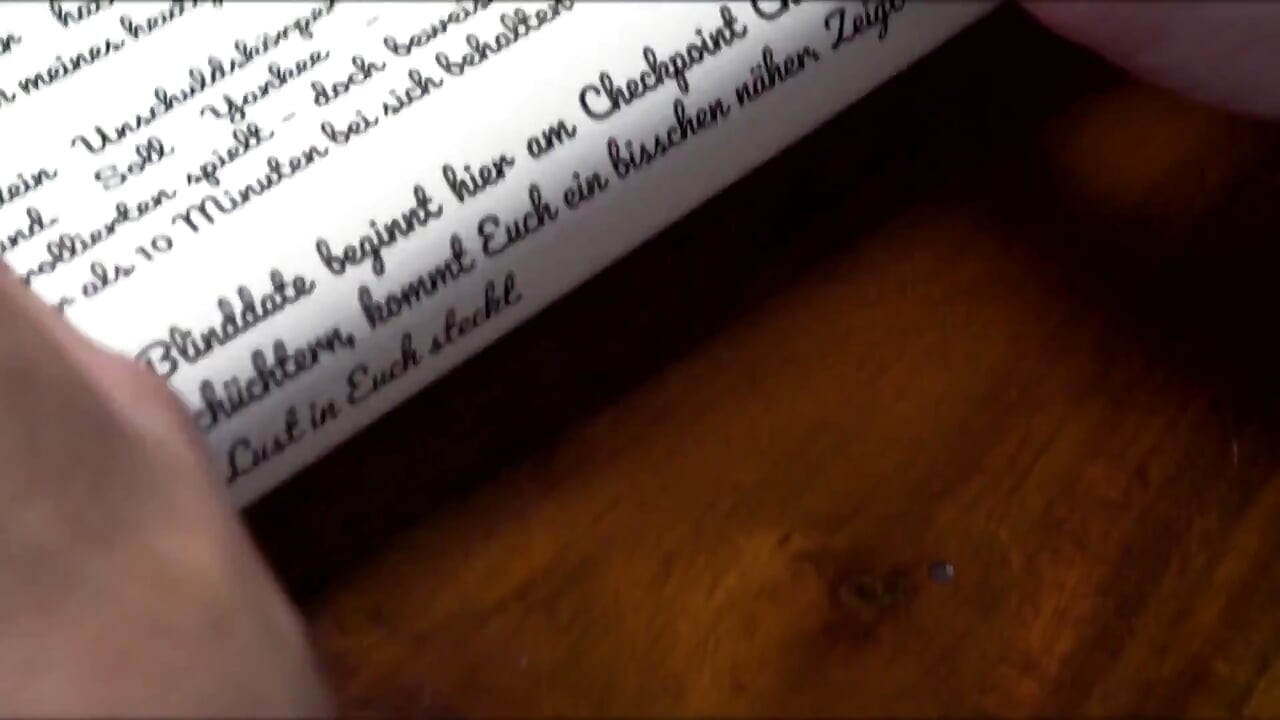 meines
Unschuldskörper
und. Soll Yankee
spielt - doch beweis
als 10 Minuten bei sich behalten
Blinddate beginnt hier am Checkpoint
chüchtern, kommt Euch ein bisschen näher. Zeigt
Lust in Euch steckt